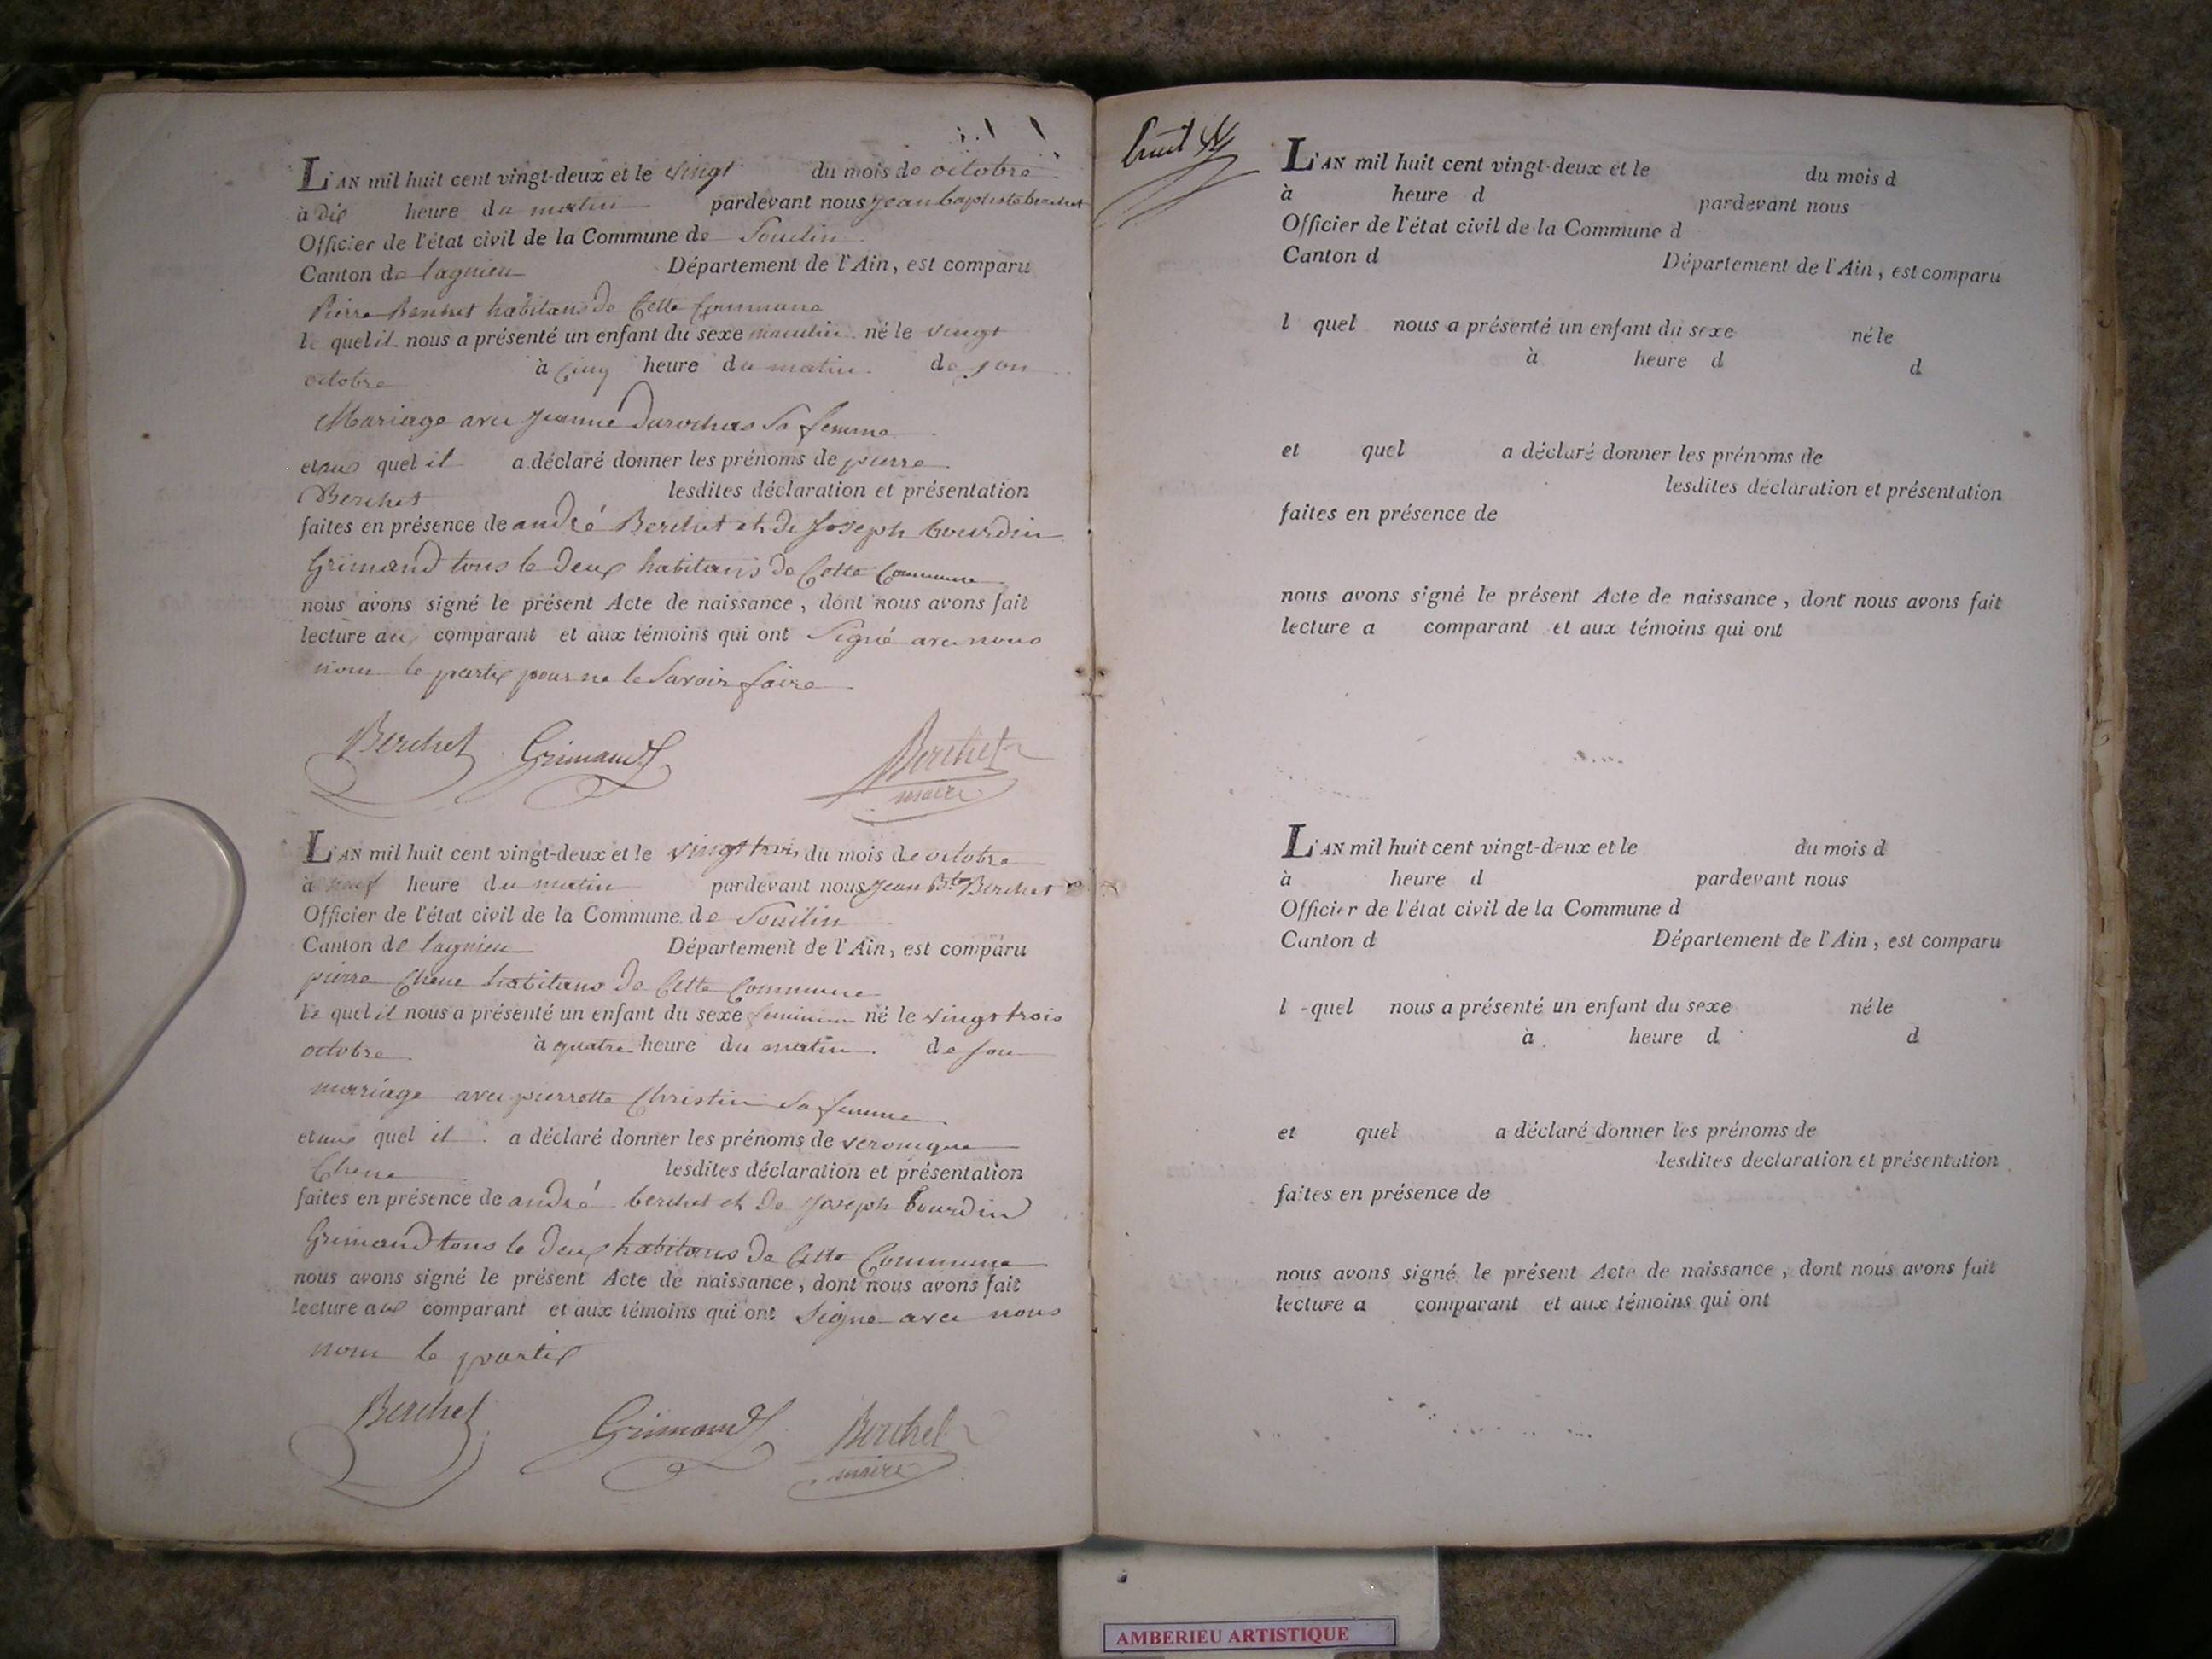 L'AN mil huit cent vingt-deux et le vingt du mois de octobre
à dix heure du matin pardevant nous jean baptiste berchet
Officier de l'état civil de la Commune de Souclin
Canton de lagnieu Département de l'Ain, est comparu
Pierre Berchet habitans de Cette Commune
le quel il nous a présenté un enfant du sexe masculin né le vingt
octobre à Cinq heure du matin de son
Mariage avec jeanne Durochas Sa femme
et au quel il a déclaré donner les prénoms de pierre
Berchet lesdites déclaration et présentation
faites en présence de andré Berchet et de Joseph bourdin
Grimand tous le deux habitans de Cette Commune
nous avons signé le présent Acte de naissance, dont nous avons fait
lecture au comparant et aux témoins qui ont Signé avec nous
nom le partix pour ne le Savoir faire
Berchet Grimand Berchet
maire
L'AN mil huit cent vingt-deux et le vingt trois du mois de octobre
à neuf heure du matin pardevant nous jean Bte Berchet
Officier de l'état civil de la Commune de Souclin
Canton de lagnieu Département de l'Ain, est comparu
pierre Chene habitans de Cette Commune
le quel il nous a présenté un enfant du sexe feminin né le vingt trois
octobre à quatre heure du matin de son
mariage avec pierrette Christin Sa femme
et au quel il a déclaré donner les prénoms de veronique
Chene lesdites déclaration et présentation
faites en présence de andré berchet et de Joseph bourdin
Grimand tous le deux habitans de Cette Commune
nous avons signé le présent Acte de naissance, dont nous avons fait
lecture aux comparant et aux témoins qui ont Signe avec nous
nom le partix
Berchet Grimand Berchet
maire
huit
L'AN mil huit cent vingt-deux et le du mois d
à heure d pardevant nous
Officier de l'état civil de la Commune d
Canton d Département de l'Ain, est comparu
l quel nous a présenté un enfant du sexe né le
à heure d d
et quel a déclaré donner les prénoms de
lesdites déclaration et présentation
faites en présence de
nous avons signé le présent Acte de naissance, dont nous avons fait
lecture a comparant et aux témoins qui ont
L'AN mil huit cent vingt-deux et le du mois d
à heure d pardevant nous
Officier de l'état civil de la Commune d
Canton d Département de l'Ain, est comparu
l quel nous a présenté un enfant du sexe né le
à heure d d
et quel a déclaré donner les prénoms de
lesdites declaration et présentation
faites en présence de
nous avons signé le présent Acte de naissance, dont nous avons fait
lecture a comparant et aux témoins qui ont
AMBERIEU ARTISTIQUE